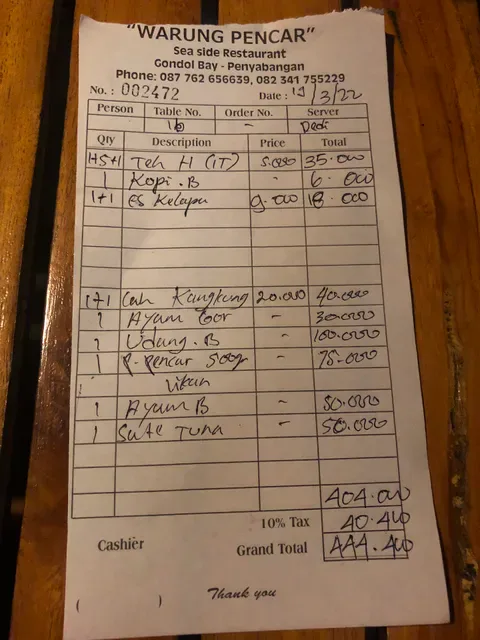 "WARUNG PENCAR"
Sea side Restaurant
Gondol Bay - Penyabangan
Phone: 087 762 656639, 082 341 755229
No. : 002472 Date : 19/3/22
Person Table No. Order No. Server
16 - Dedi
Qty Description Price Total
1+5+1 Teh H (IT) 5.000 35.000
1 Kopi . B - 6.000
1+1 ES Kelapa 9.000 18.000
1+1 Cah Kangkung 20.000 40.000
1 Ayam Gor - 30.000
1 Udang . B - 100.000
1 P. pencar 500gr - 75.000
Ikan
1 Ayam B - 50.000
1 Sate Tuna - 50.000
404.000
10% Tax 40.400
Cashier Grand Total 444.400
Thank you
( )